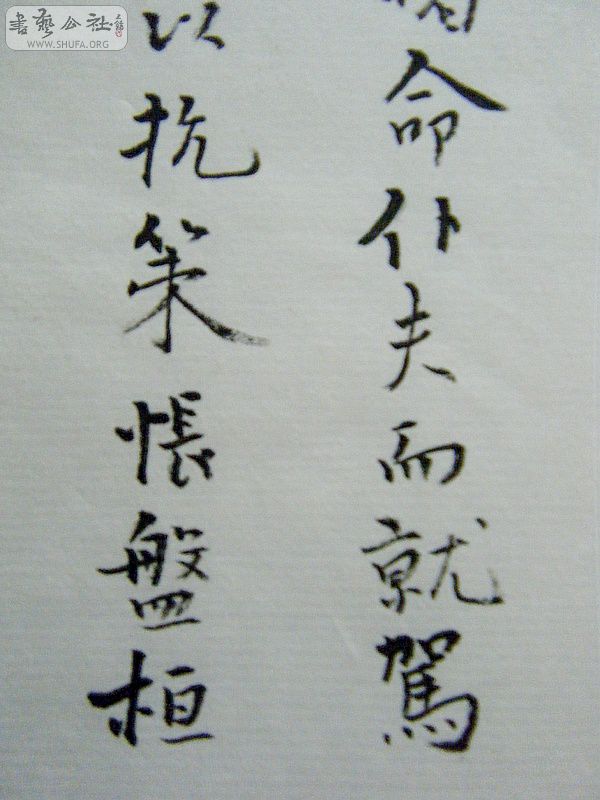 命仆夫而就駕
以抗策悵盤桓
書藝公社
WWW.SHUFA.ORG